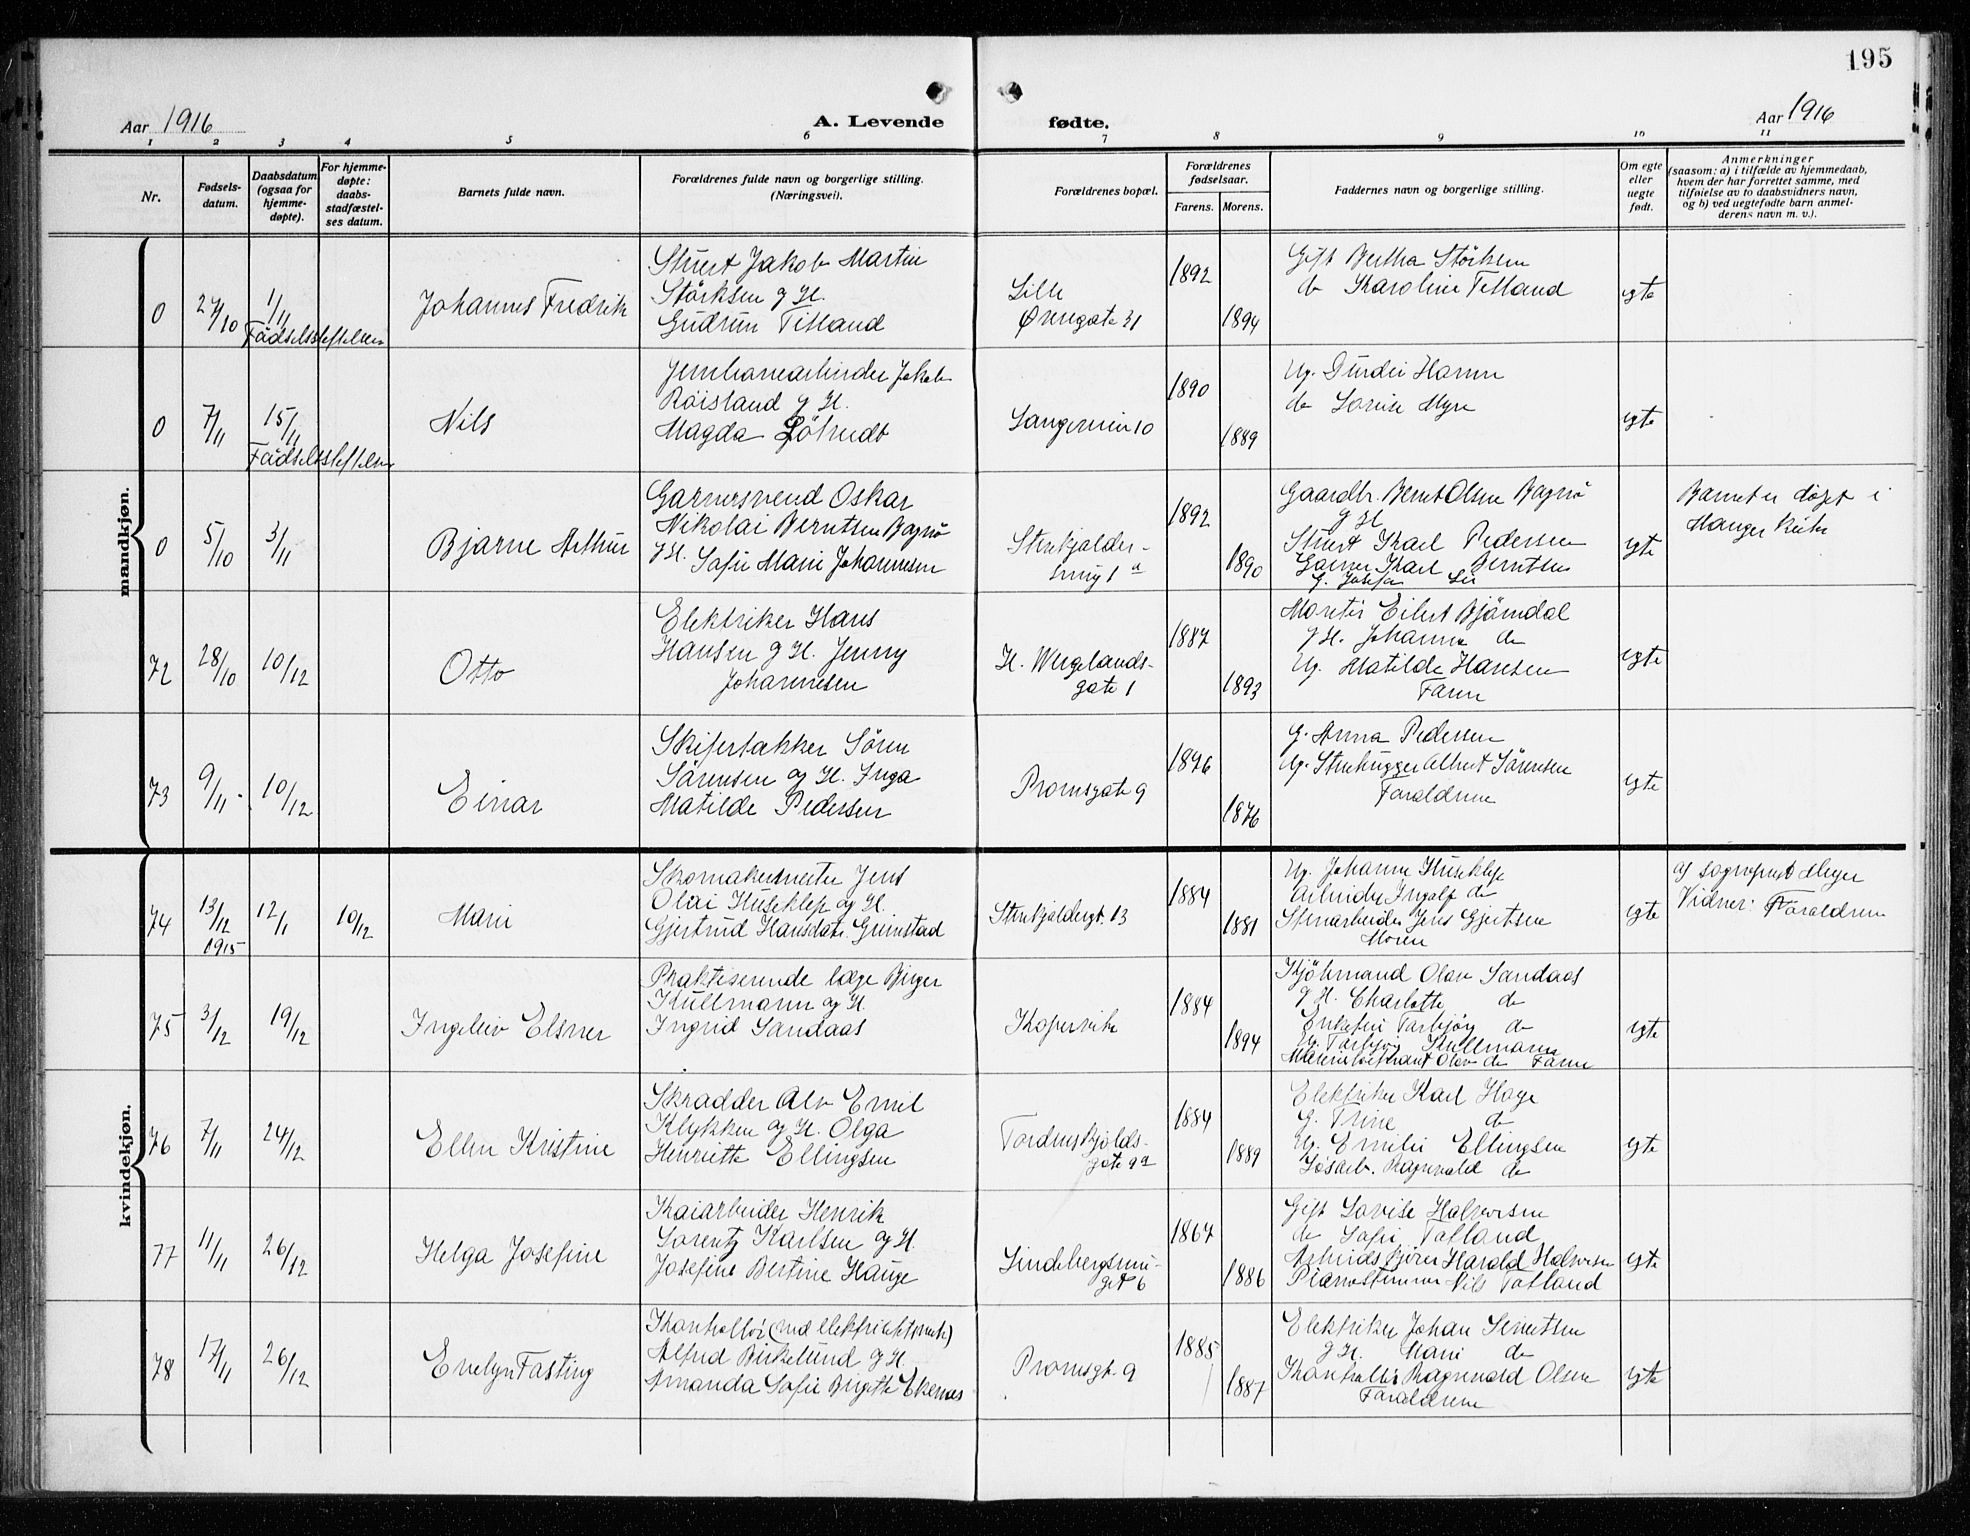 195
Aar 1916
A. Levende fødte.
Aar 1916
1 2 3 4 5 6 7 8 9 10 11
Nr.
Fødsels-
datum.
Daabsdatum
(ogsaa for
hjemme-
døpte).
For hjemme-
døpte:
daabs-
stadfæstel-
ses datum.
Barnets fulde navn.
Forældrenes fulde navn og borgerlige stilling.
(Næringsvei).
Forældrenes bopæl.
Forældrenes
fødselsaar.
Farens. Morens.
Faddernes navn og borgerlige stilling.
Om egte
eller
uegte
født.
Anmerkninger
(saasom: a) i tilfælde av hjemmedaab,
hvem der har forrettet samme, med
tilføielse av to daabsvidners navn,
og b) ved uegtefødte barn anmel-
derens navn m. v.).
mandkjøn.
0
27/10
1/11
Fødselsstiftelsen
Johannes Fredrik
Stuert Jakob Martin
Störksen g H.
Gudrun Titland
Lille
Øvregate 31
1892
1894
Gift Bertha Störksen
do Karoline Titland
egte
0
7/11
15/11
Fødselsstiftelsen
Nils
Jernbanearbeider Jakob
Röisland g H.
Magda
Langesmien 10
1890
1889
Ug. Hamre
do Lovise Myre
egte
0
5/10
3/11
Bjarne Arthur
Garnersvend Oskar
Nikolai Berntsen Bognø
g H. Sofie Marie Johannesen
Stenkjelder-
smug 1a
1892
1890
Gaardbr. Bernt Olsen Bognø
g H
Stuert Karl Pedersen
Garner Karl Berntsen
G. Josefa Lie
egte
Barnet er døpt i
Manger kirke
72
28/10
10/12
Otto
Elektriker Hans
Hansen g H. Jenny
Johannesen
H. Wergelands-
gate 1
1887
1893
Montör Eilert Bjørndal
g H. Johanna do
Ug. Matilde Hansen
Faren
egte
73
9/11
10/12
Einar
Skifertækker Sören
Sörensen og H. Inga
Matilde Pedersen
Promsgate 9
1876
1876
G. Anna Pedersen
Ug. Stenhugger Albert Sörensen
Forældrene
egte
kvindekjøn.
74
13/12
1915
12/1
10/12
Marie
Skomakermester Jens
Olai Huseklep og H.
Gjertrud Hansdatr. Grimstad
Stenkjeldergt. 13
1884
1881
Ug. Johanne Huseklep
Arbeider Ingolf do
Stenarbeider Jens Gjertsen
Moren
egte
af sogneprest Meyer
Vidner: Forældrene
75
3/12
19/12
Ingeleiv Elsner
Praktiserende læge Birger
Kullmann og H.
Ingrid Sandaas
Kopervik
1884
1894
Kjöbmand Olav Sandaas
g H. Charlotte do
Enkefru Torbjörg do
Ug. Torbjörg Kullmann
Olav do Faren
egte
76
7/11
24/12
Ellen Kristine
Skrædder Alv Emil
Klykken og H. Olga
Henriette Ellingsen
Tordenskjolds-
gate 9a
1884
1889
Elektriker Karl Hage
G. Trine do
Ug. Emilie Ellingsen
Lösarb. Ragnvald do
egte
77
11/11
26/12
Helga Josefine
Kaiarbeider Henrik
Lorentz Karlsen og H.
Josefine Bertine Hauge
Lindebergsmu-
get 6
1867
1886
Gift Lovise Halvorsen
do Sofie Tofland
Arbeids Harald Halvorsen
Pianostemmer Nils Tofland
egte
78
17/11
26/12
Evelyn Fasting
Kontrollör (ved elektricitetsverk)
Alfred Birkelund g H.
Amanda Sofie Birgitte Ekernes
Promsgt. 9
1885
1887
Elektriker Johan Sivertsen
g H. Marie do
Kontrollör Ragnvald Olsen
Forældrene
egte